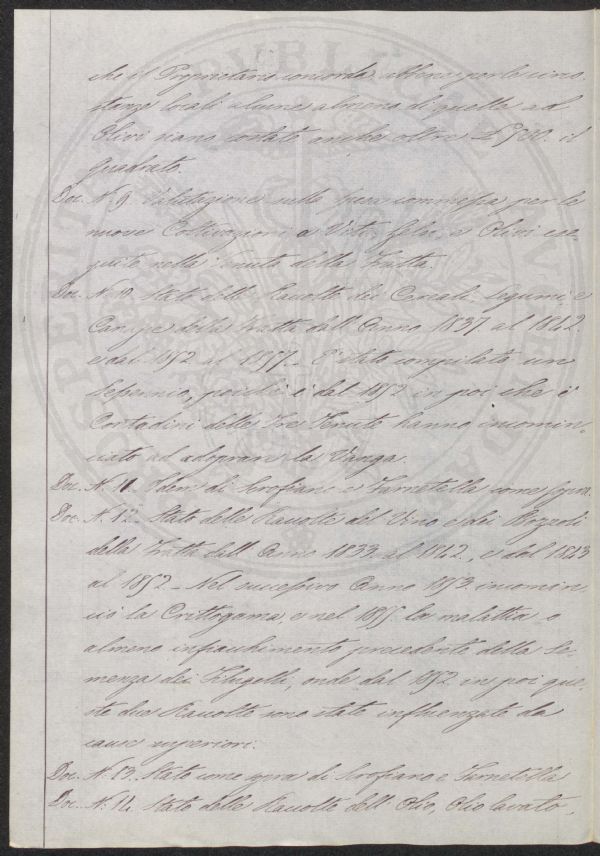 che il Proprietario concorda, attese per le circo,
stanze locali alcune almeno di quelle ad
Olivi siano costate anche oltre £ 900. il
quadrato.
Doc. N. 9. Valutazione sulle spese commesse per le
nuove Coltivazioni a Viti, Gelsi, e Olivi ese,
guite nella Tenuta della Fratta.
Doc. N. 10. Stato delle Raccolte dei Cereali, Legumi, e
Canape della Fratta dall'Anno 1837 al 1842.
e dal 1852 al 1857. E' stato compilato un
Sessennio, poichè è dal 1852 in poi che i
Contadini delle Tre Tenute hanno incomin,
ciato ad adoprare la Vanga.
Doc. N. 11. Idem di Scrofiano e Turretella come sopra.
Doc. N. 12. Stato delle Raccolte del Vino e dei Bozzoli
della Fratta dall'Anno 1833 al 1842, e dal 1843
al 1852 _ Nel successivo Anno 1853 incomin,
ciò la Crittogama e nel 1855 la malattia o
almeno infracidimento precedente della Se,
menza dei Filugelli, onde dal 1852 in poi que,
ste due Raccolte sono state influenzate da
cause superiori.
Doc. N. 13. Stato come sopra di Scrofiano e Turretella
Doc. N. 14. Stato delle Raccolte dell'Olio, Olio lavato,
PVBLICAE
PROSPERITATIS